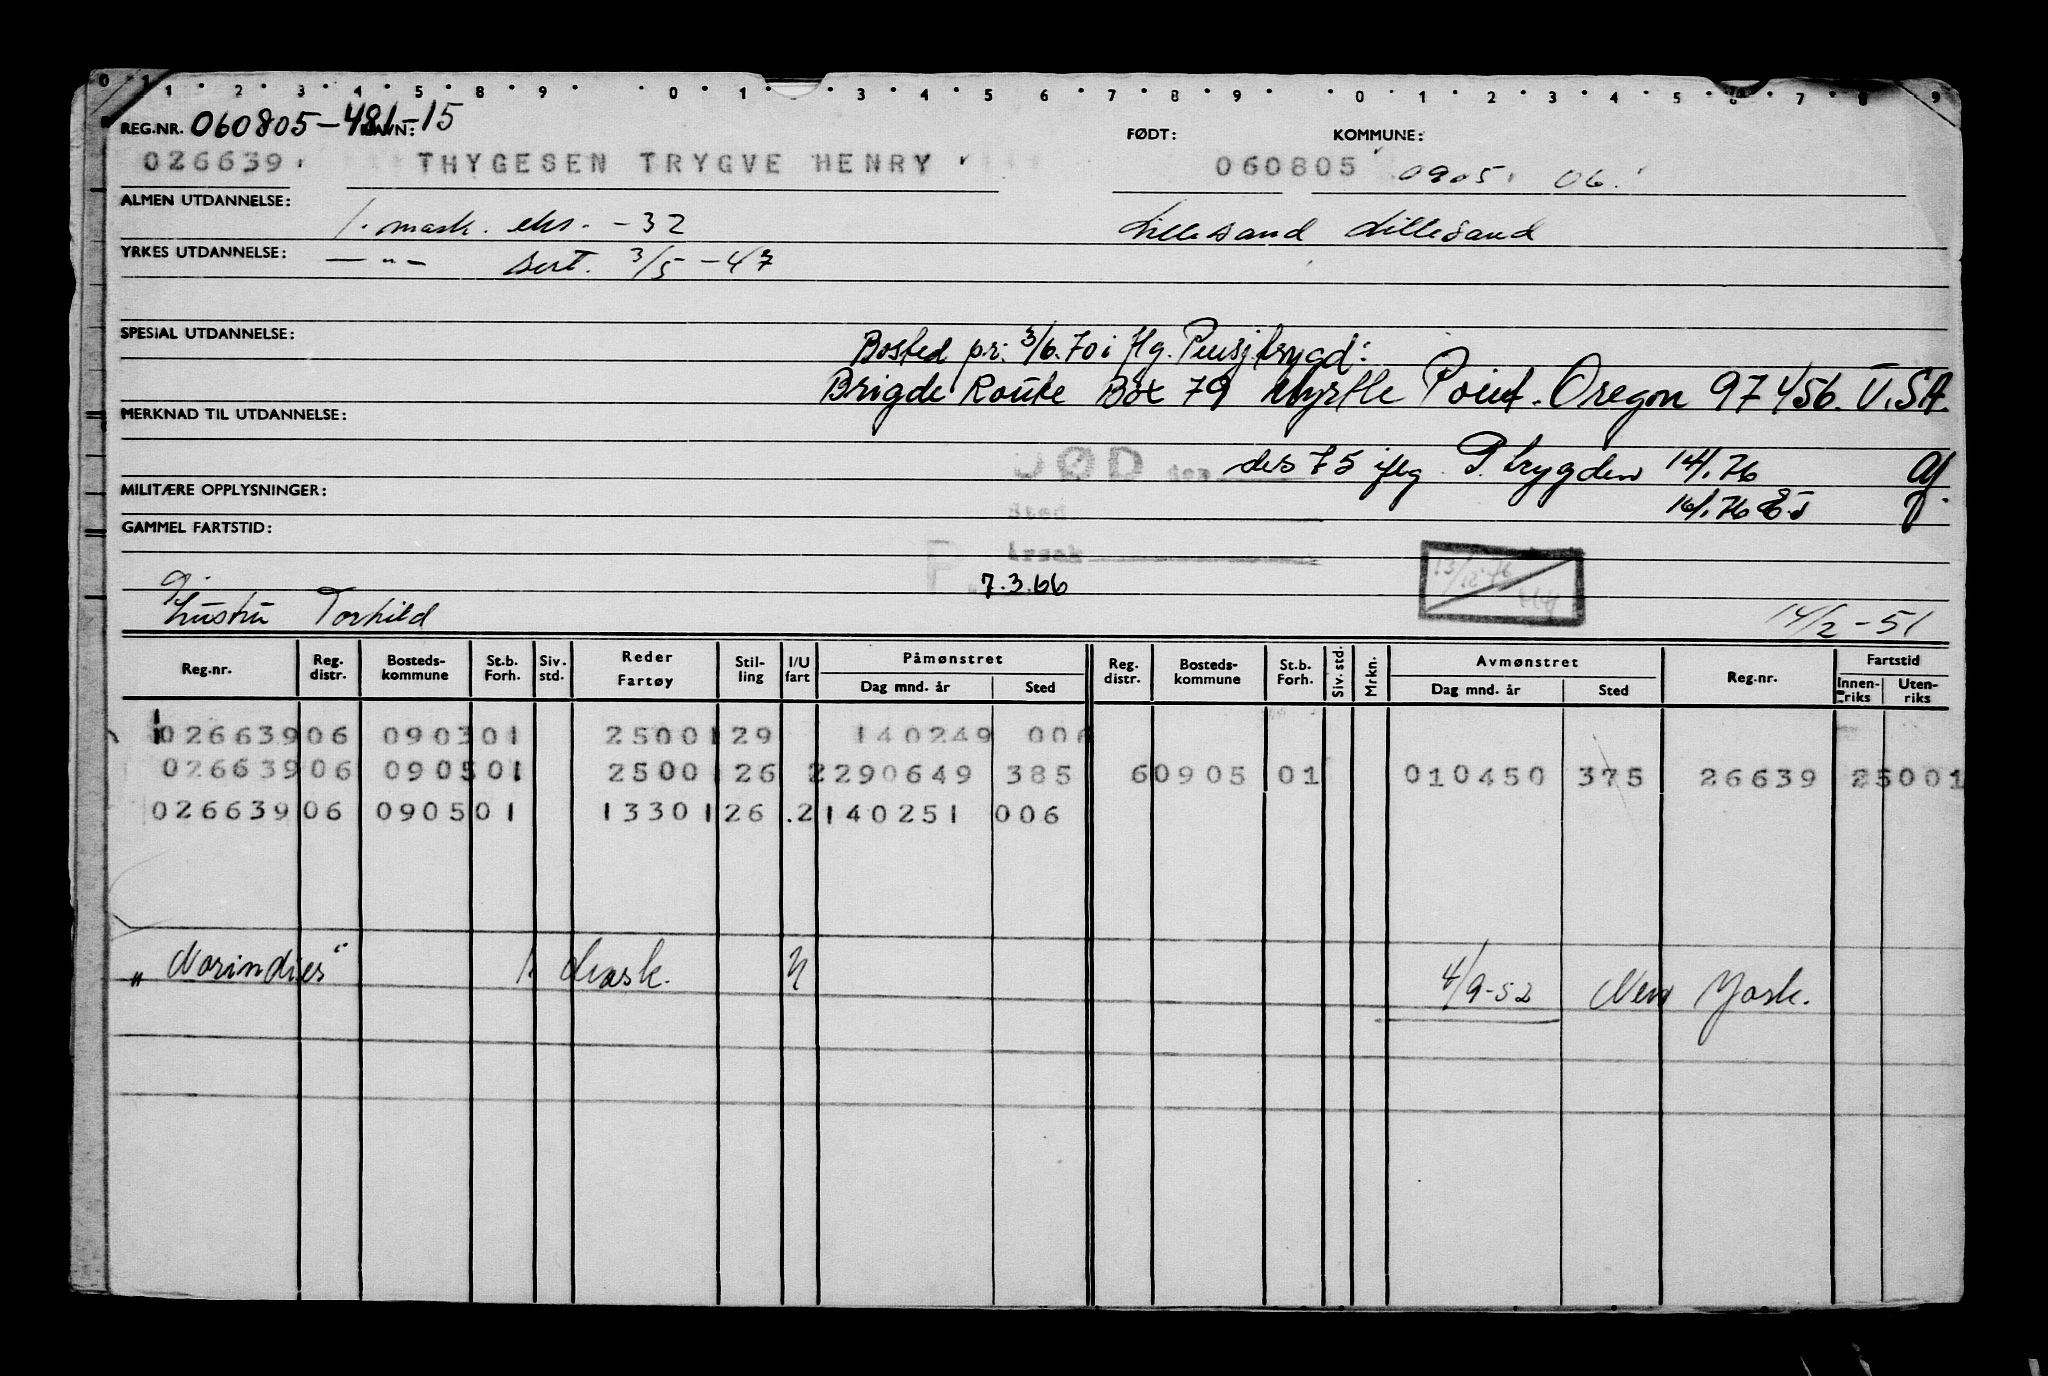 0 1 1 2 3 4 5 8 9 0 1 3 4 5 6 7 8 9 0 1 2 3 4 5 6 7 8 9
REG.NR. 060805-481-15 NAVN: FØDT: KOMMUNE:
026639 THYGESEN TRYGVE HENRY 060805 0905 06
ALMEN UTDANNELSE: 1. mask. eks. -32 Lillesand Lillesand
YRKES UTDANNELSE: — „ — sert. 3/5 -47
SPESIAL UTDANNELSE:
Bosted pr. 3/6.70 i flg. Pensj.trygd:
Brigde Route Box 79 Myrtle Point. Oregon 97456. U.S.A.
MERKNAD TIL UTDANNELSE:
DØD den des 75 iflg. P. trygden 14/1.76
MILITÆRE OPPLYSNINGER: Sted 16/1.76
GAMMEL FARTSTID:
Årsak
P. 7.3.66
Hustru Torhild 14/2-51
Reg.nr. Reg. distr. Bosteds-kommune St.b. Forh. Siv. std. Reder Fartøy Stil-ling I/U fart Påmønstret Dag mnd. år Sted Reg. distr. Bosteds-kommune St.b. Forh. Siv. std. Mrkn. Avmønstret Dag mnd. år Sted Reg.nr. Fartstid Innen-riks Uten-riks
026639 06 0903 01 2500 1 29 140249 006
026639 06 0905 01 2500 1 26 2 290649 385 6 0905 01 010450 375 26639 25001
026639 06 0905 01 1330 1 26 .2 140251 006
„Norindies" 1. Mask. U 4/9-52 New York.